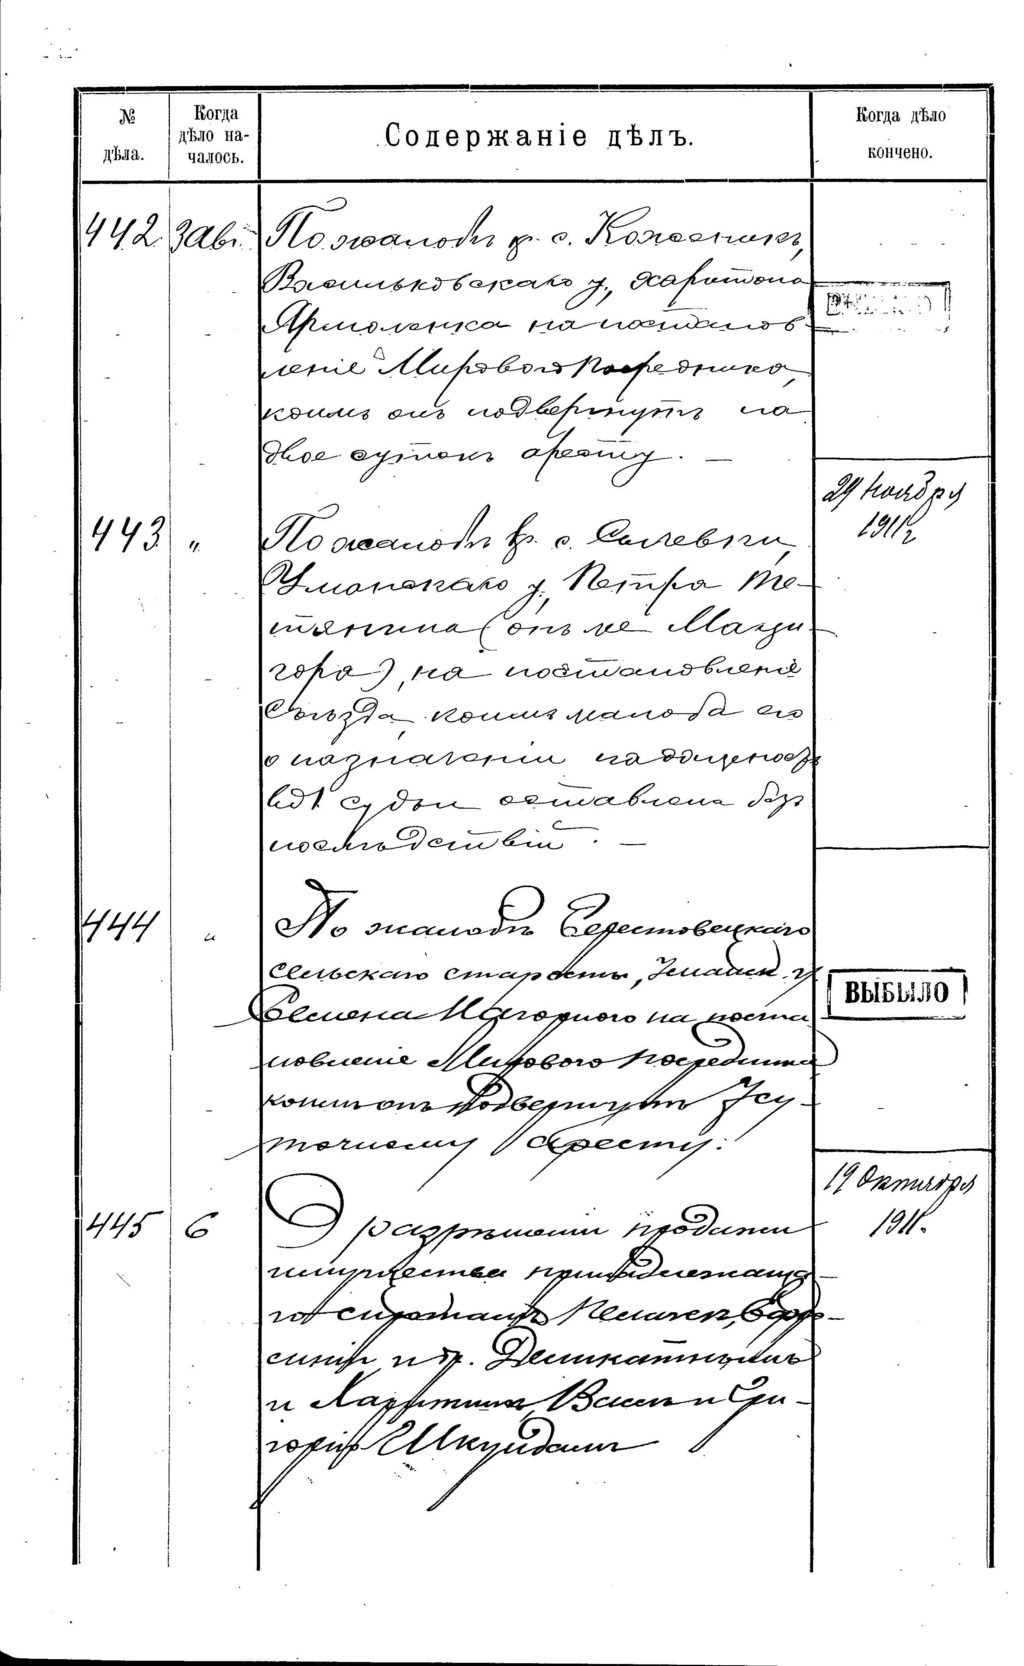 № дѣла.
Когда дѣло началось.
Содержаніе дѣлъ.
Когда дѣло кончено.
442 3 Авг. По жалобѣ кр. с. Кожееникъ,
Васильковскаго у., Харитона
Ярмоленка на постанов-
леніе Мирового Посредника,
коимъ онъ подвергнутъ на
двое сутокъ аресту. —
29 Ноября
1911 г.
443 " По жалобѣ кр. с.
Уманскаго у., Петра Те-
тянина (онъ же Манзи-
гора), на постановленіе
Съѣзда, коимъ жалоба его
о назначеніи на должность
судьи оставлена безъ
послѣдствій. —
444 " По жалобѣ Берестовецкаго
сельскаго старосты, Уманск. у.
Семена Нагорного на поста
новленіе Мирового Посредника
коимъ онъ подвергнутъ 7 су-
точному аресту.
ВЫБЫЛО
19 Октября
1911.
445 6 О разрѣшеніи продажи
имущества принадлежаща-
го сиротамъ Пелагеи, Евфро-
синіи и др. Деликатнымъ
и Харитины, Васил. и Гри-
горію Шкундамъ